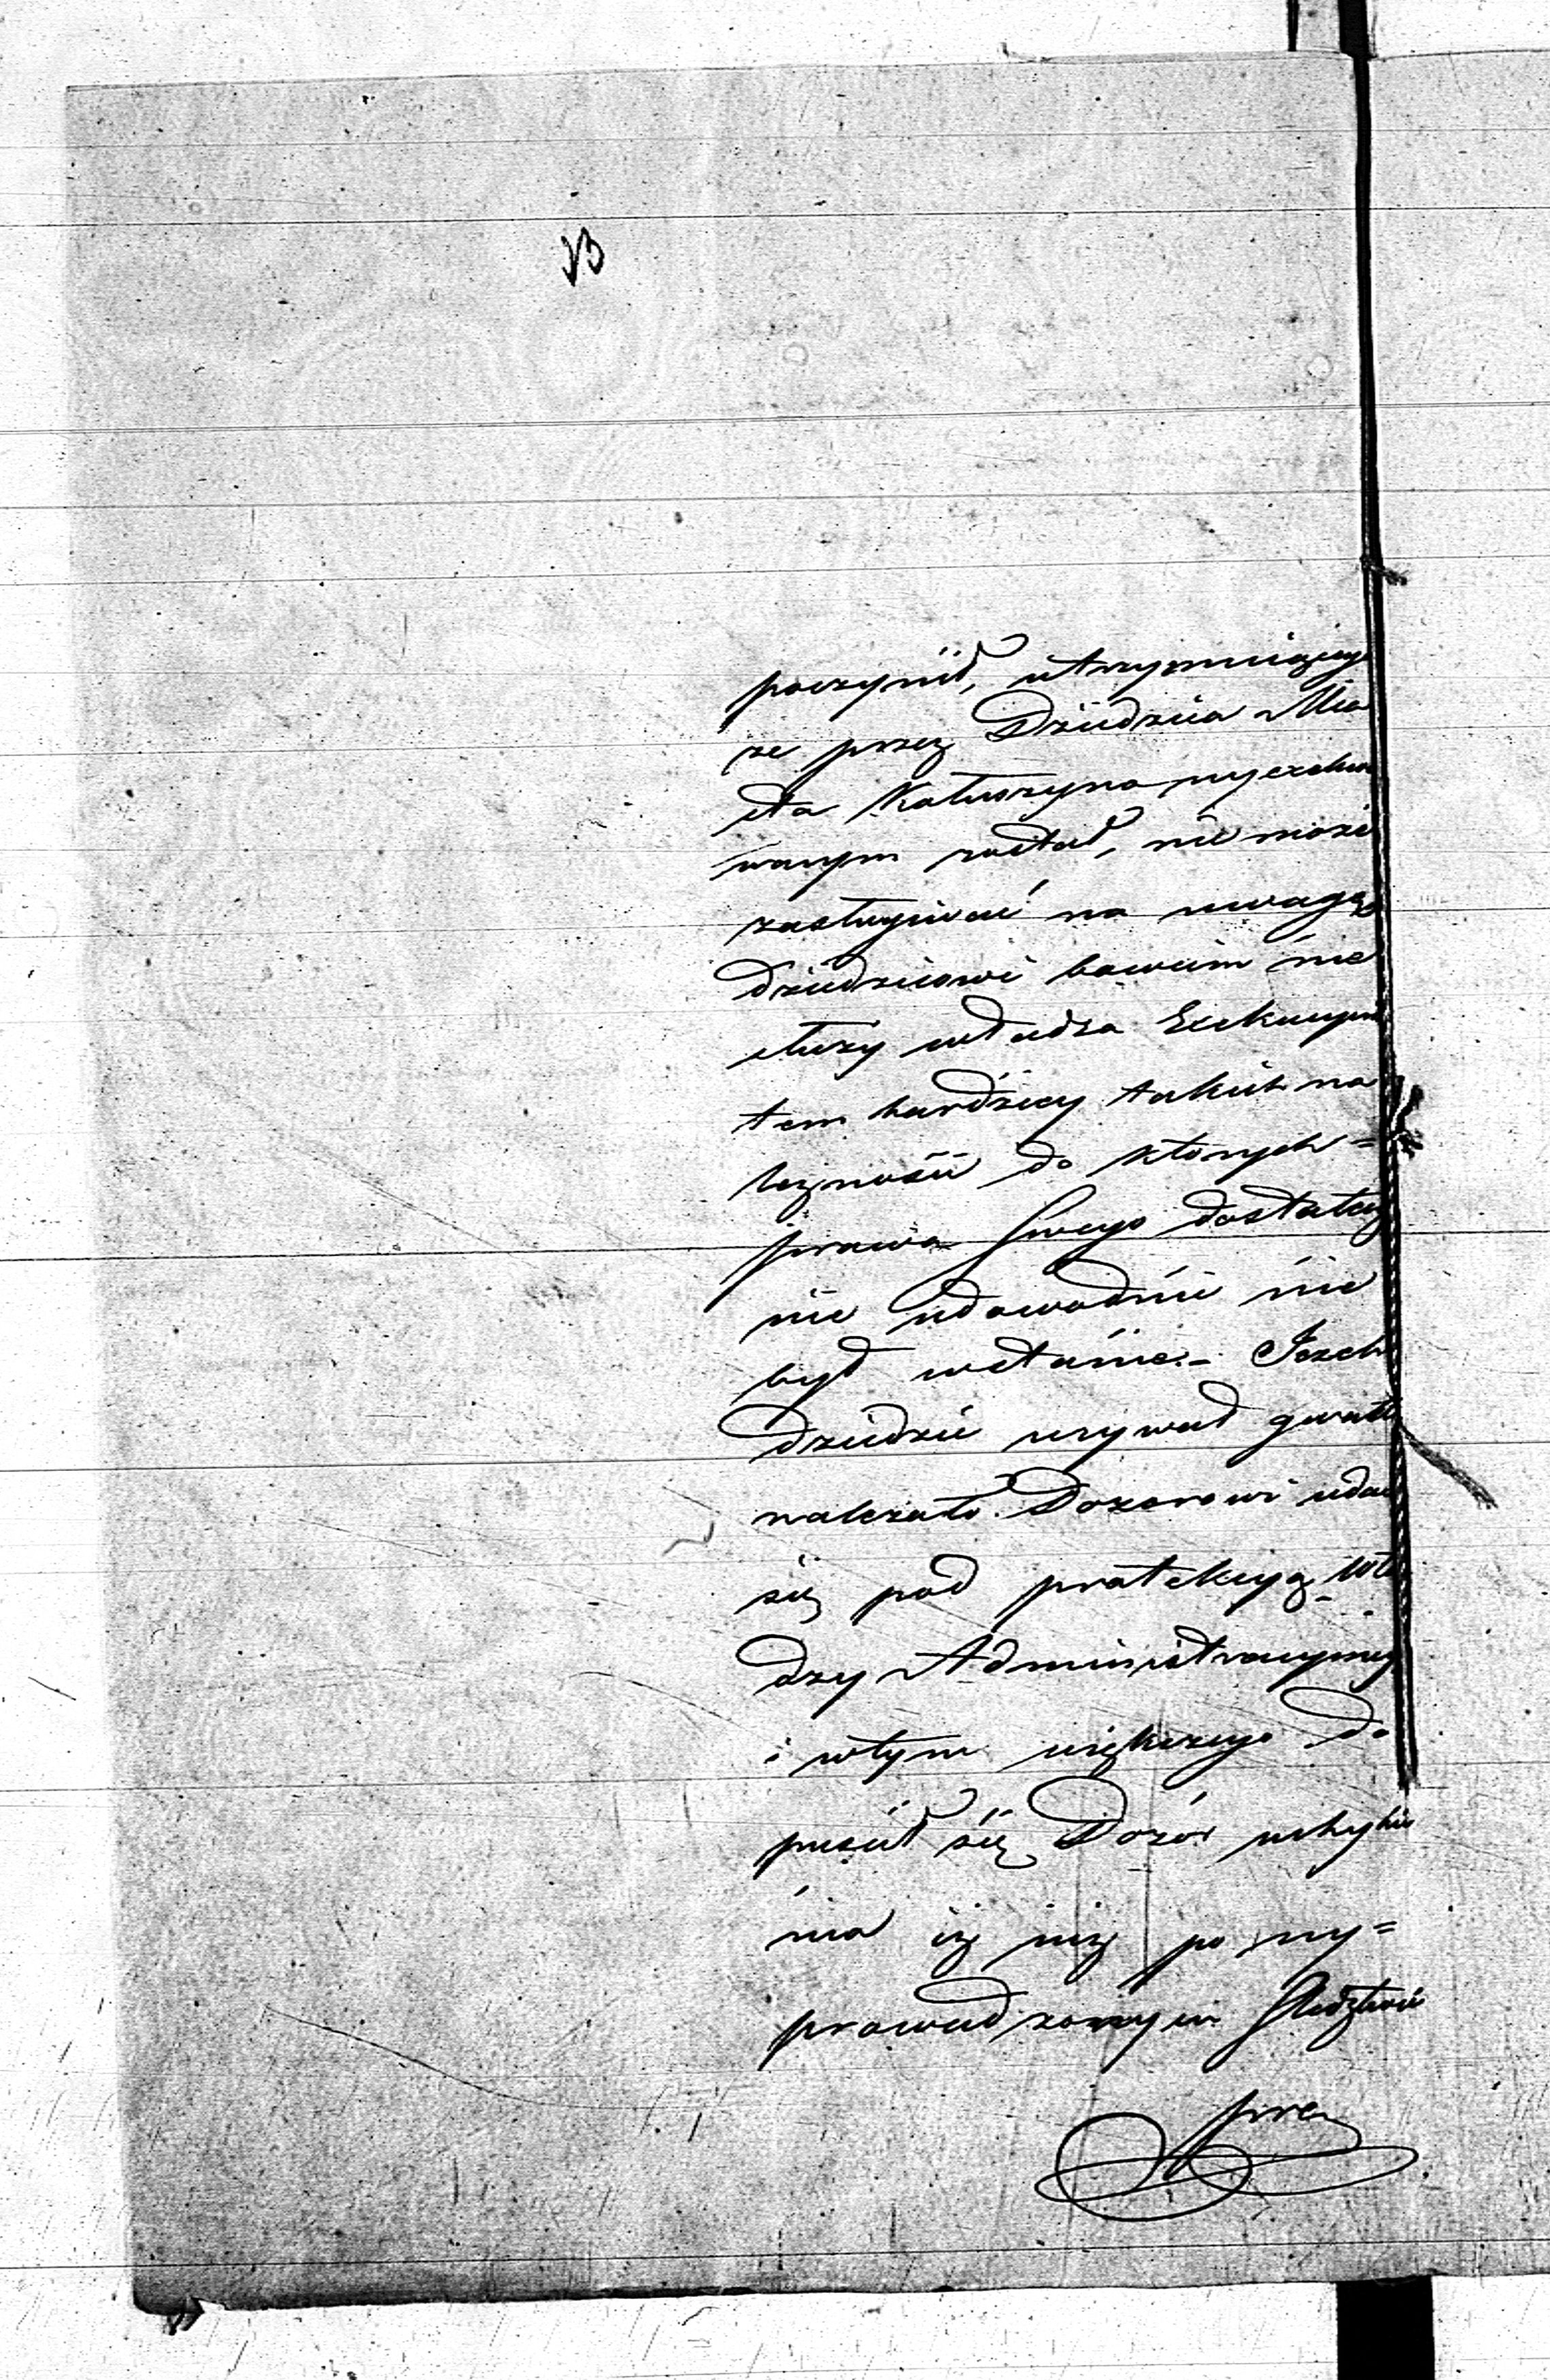 poczynił, utrzymuiąceg
że przez Dziedzica Mia
sta Kałuszyna wyexekw
wanym został, nie może
zasługiwać na uwagę,
Dziedzicowi bowiem nie
służy władza Exekucyi
tem bardziey takich na
leżności do których =
prawa swego dostatecz
nie udowodnić nie
był wstanie. - Jeżeli
dziedzic używał gwałt
należało Dozorowi udać
się pod protekcyą Wła
dzy Administracyiney
i wtym większego do
puścił się Dozór uchybie
nia iż niż po wy=
prowadzonym Śledztwie
przez